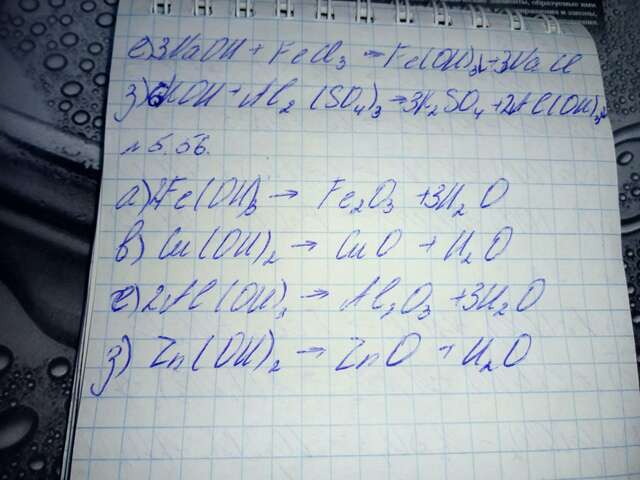 е) 3NaOH + FeCl₃ = Fe(OH)₃↓ + 3NaCl
з) 6KOH + Al₂(SO₄)₃ = 3K₂SO₄ + 2Al(OH)₃↓
№ 5.56.
а) 2Fe(OH)₃ → Fe₂O₃ + 3H₂O
в) Cu(OH)₂ → CuO + H₂O
е) 2Al(OH)₃ → Al₂O₃ + 3H₂O
з) Zn(OH)₂ → ZnO + H₂O